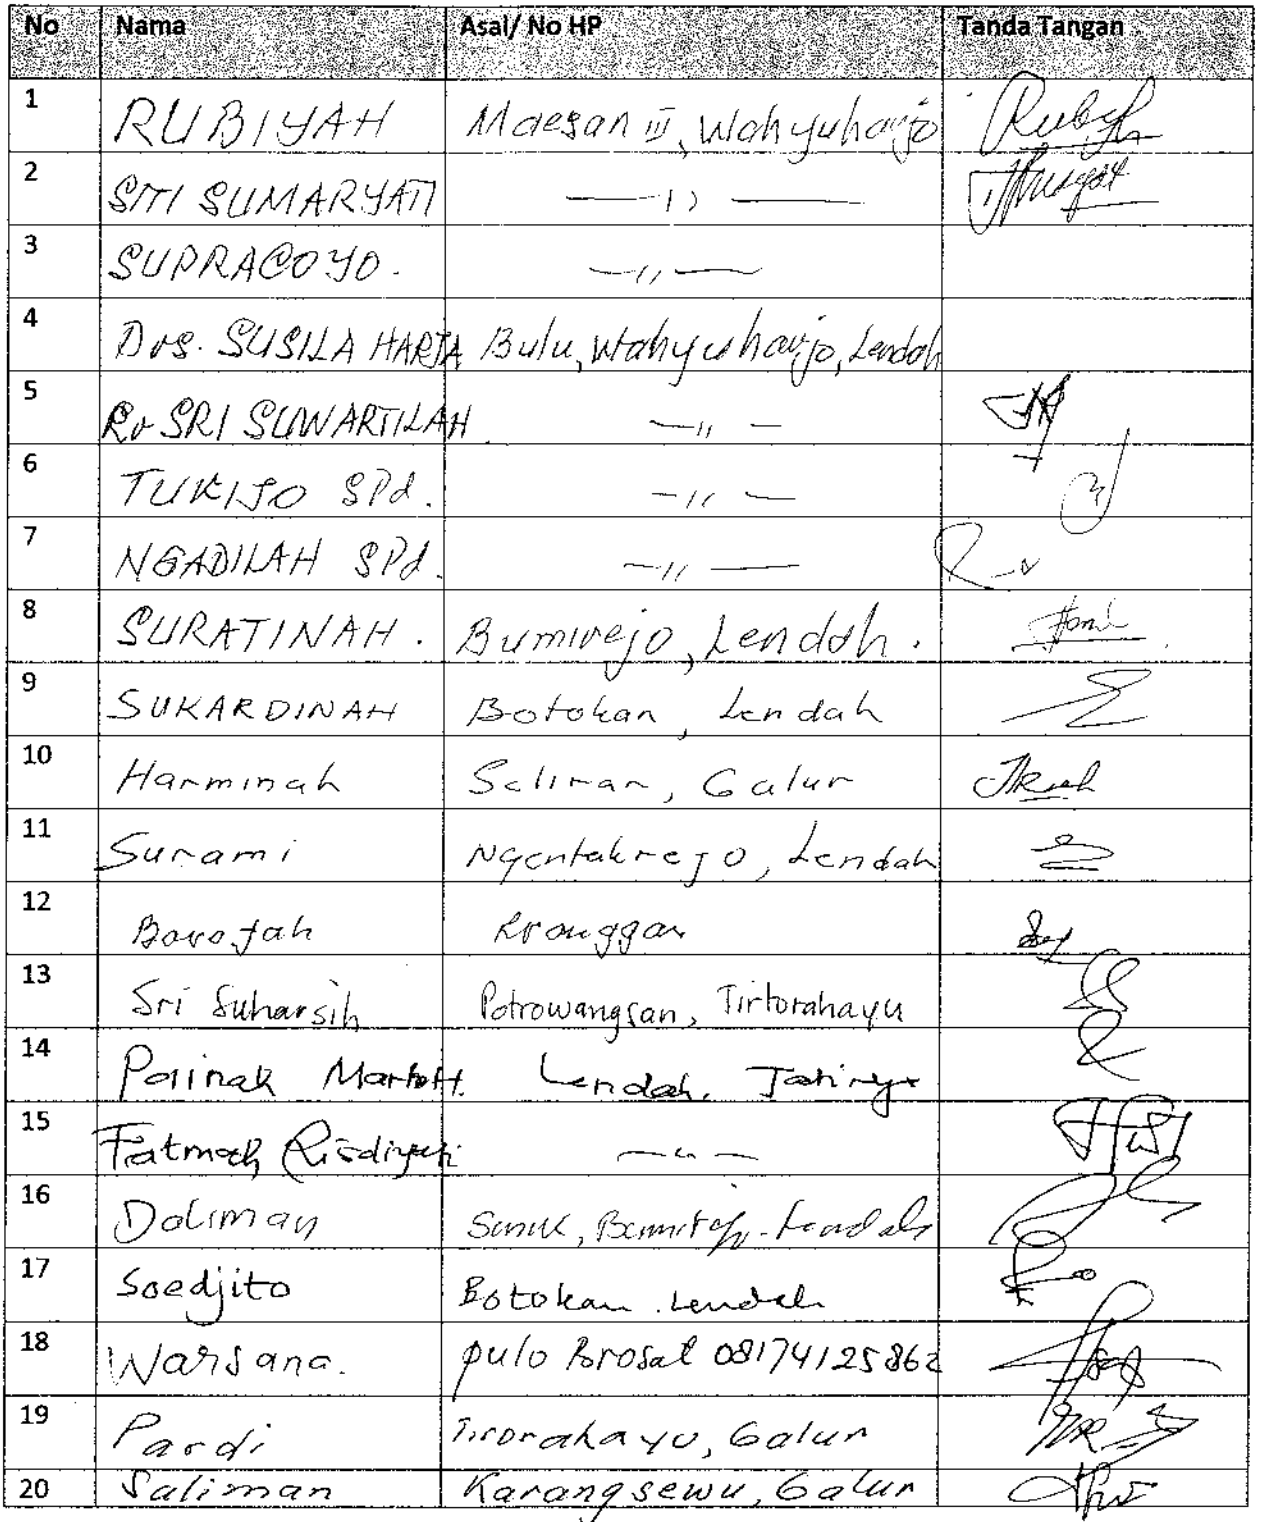 No Nama Asal/ No HP Tanda Tangan
1 RUBIYAH Maesan III, Wahyuharjo
2 SITI SUMARYATI —— 1) ——
3 SUPRACOYO. —— ,, ——
4 Drs. SUSILA HARTA Bulu, Wahyuharjo, Lendah
5 Rr SRI SUWARTILAH —— ,, —
6 TUKIJO SPd. — ,, —
7 NGADILAH SPd. —— ,, ——
8 SURATINAH. Bumirejo, Lendah.
9 SUKARDINAH Botokan, Lendah
10 Harminah Saliran, Galur
11 Surami Ngentakrejo, Lendah
12 Kranggan
13 Sri Suharsih Potrowangsan, Tirtorahayu
14 Painah Lendah, Jatirejo
15 Fatmah Risdiyati — ,, —
16 Daliman Lendah
17 Soedjito Botokan. Lendah
18 Warsana. pulo Brosot 08174125862
19 Pardi Tirorahayu, Galur
20 Saliman Karangsewu, Galur